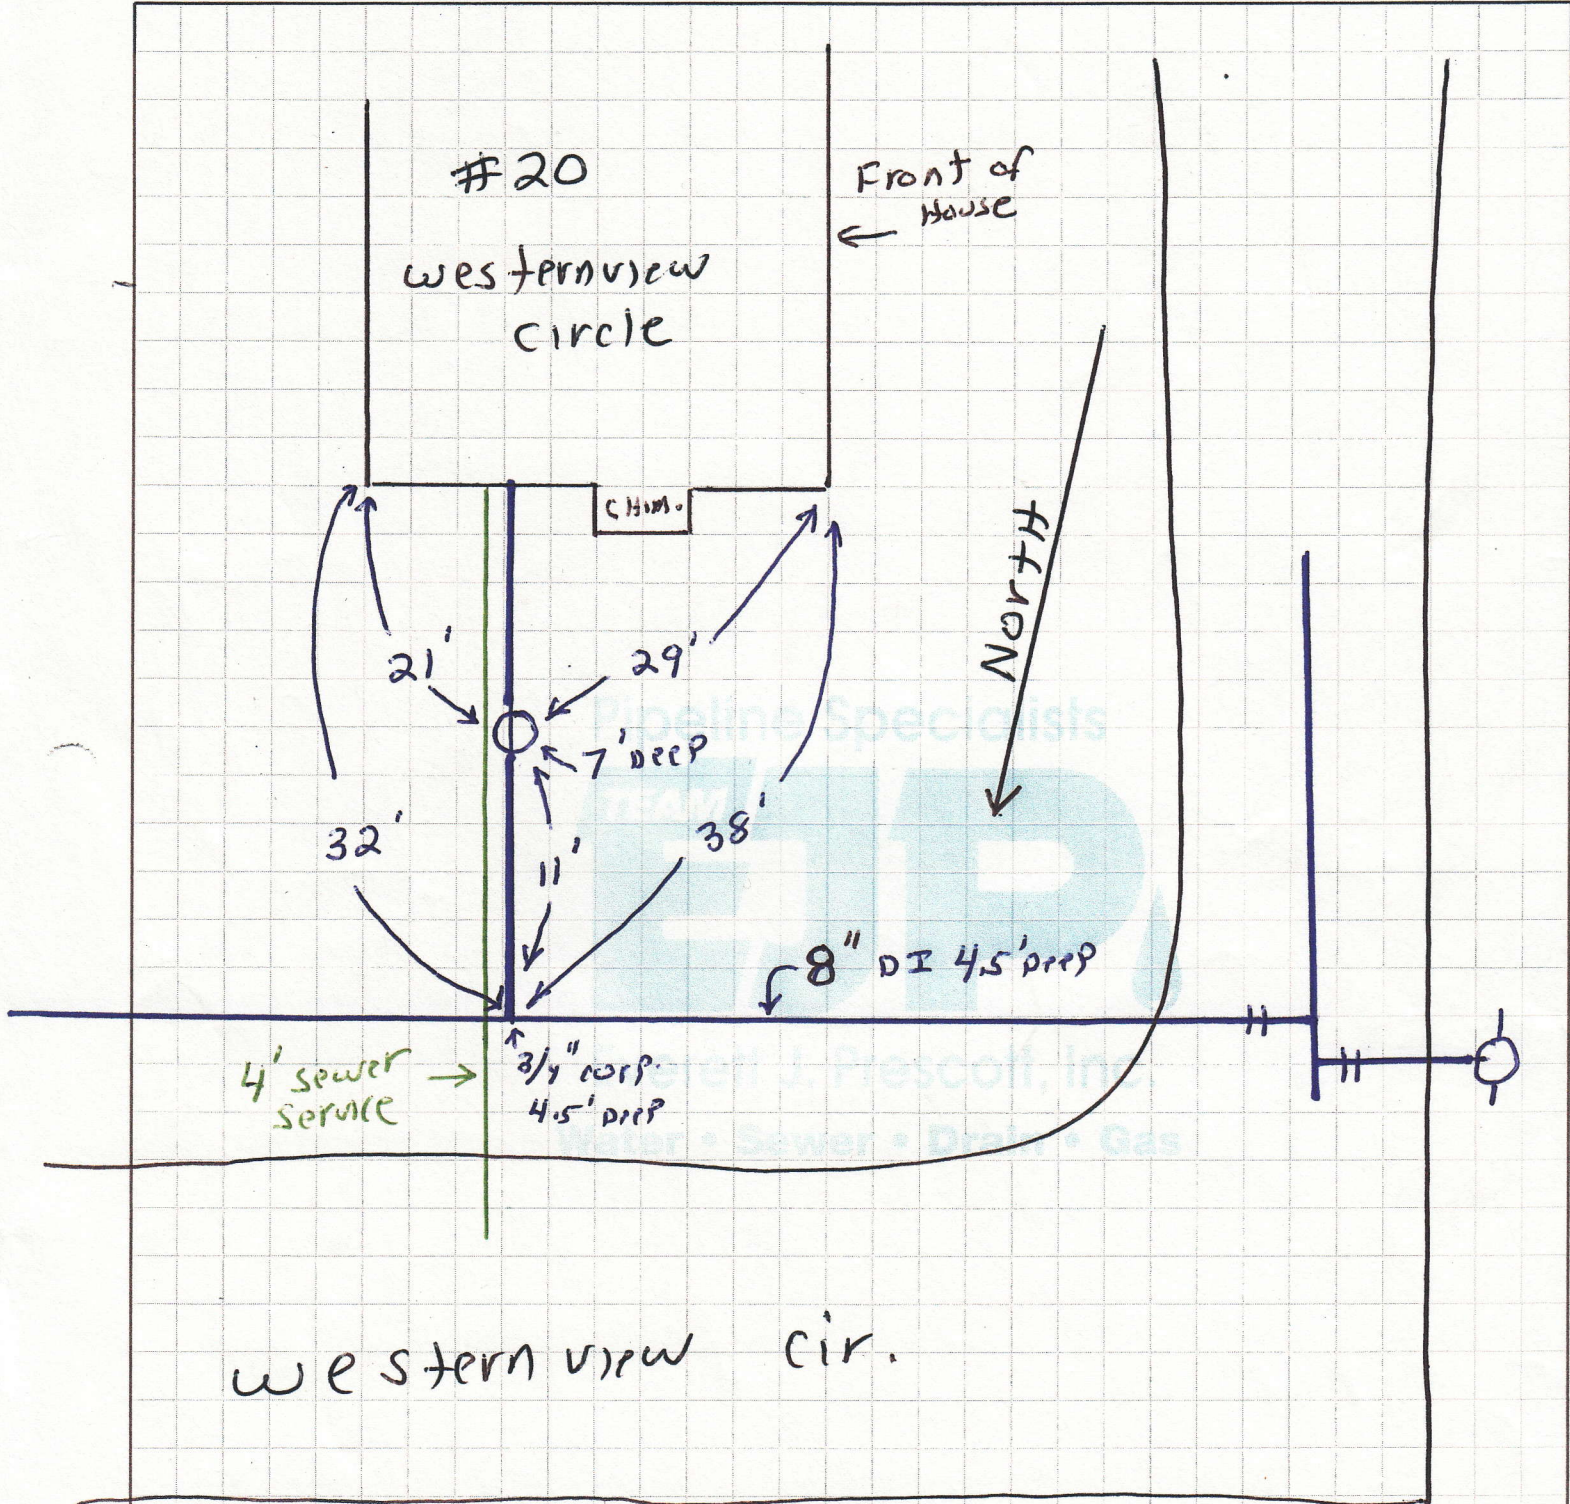 #20
Westernview
Circle
Front of
House
CHIM.
North
21'
29'
7' Deep
32'
11'
38'
8" DI 4.5' Deep
4' sewer
service
3/4" corp.
4.5' Deep
Pipeline Specialists
TEAM
EJP
Everett J. Prescott, Inc.
Water • Sewer • Drain • Gas
Westernview Cir.